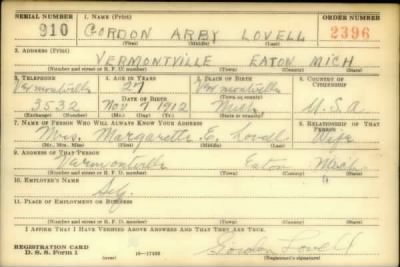 SERIAL NUMBER 1. NAME (Print) ORDER NUMBER
910 GORDON ARBY LOVELL 2396
(First) (Middle) (Last)
2. ADDRESS (Print)
VERMONTVILLE EATON MICH
(Number and street or R. F. D. number) (Town) (County) (State)
3. TELEPHONE 4. AGE IN YEARS 5. PLACE OF BIRTH 6. COUNTRY OF CITIZENSHIP
Vermontville 27 Vermontville
DATE OF BIRTH (Town or county)
3532 Nov 9 1912 Mich U.S.A
(Mo.) (Day) (Yr.) (State or country)
7. NAME OF PERSON WHO WILL ALWAYS KNOW YOUR ADDRESS 8. RELATIONSHIP OF THAT PERSON
Mrs. Margarette E. Lovell Wife
(Mr., Mrs., Miss) (First) (Middle) (Last)
9. ADDRESS OF THAT PERSON
Vermontville Eaton Mich
(Number and street or R. F. D. number) (Town) (County) (State)
10. EMPLOYER'S NAME
Self
11. PLACE OF EMPLOYMENT OR BUSINESS
(Number and street or R. F. D. number) (Town) (County) (State)
I AFFIRM THAT I HAVE VERIFIED ABOVE ANSWERS AND THAT THEY ARE TRUE.
REGISTRATION CARD
D. S. S. Form 1 16-17105 Gordon Lovell
(Registrant's signature)